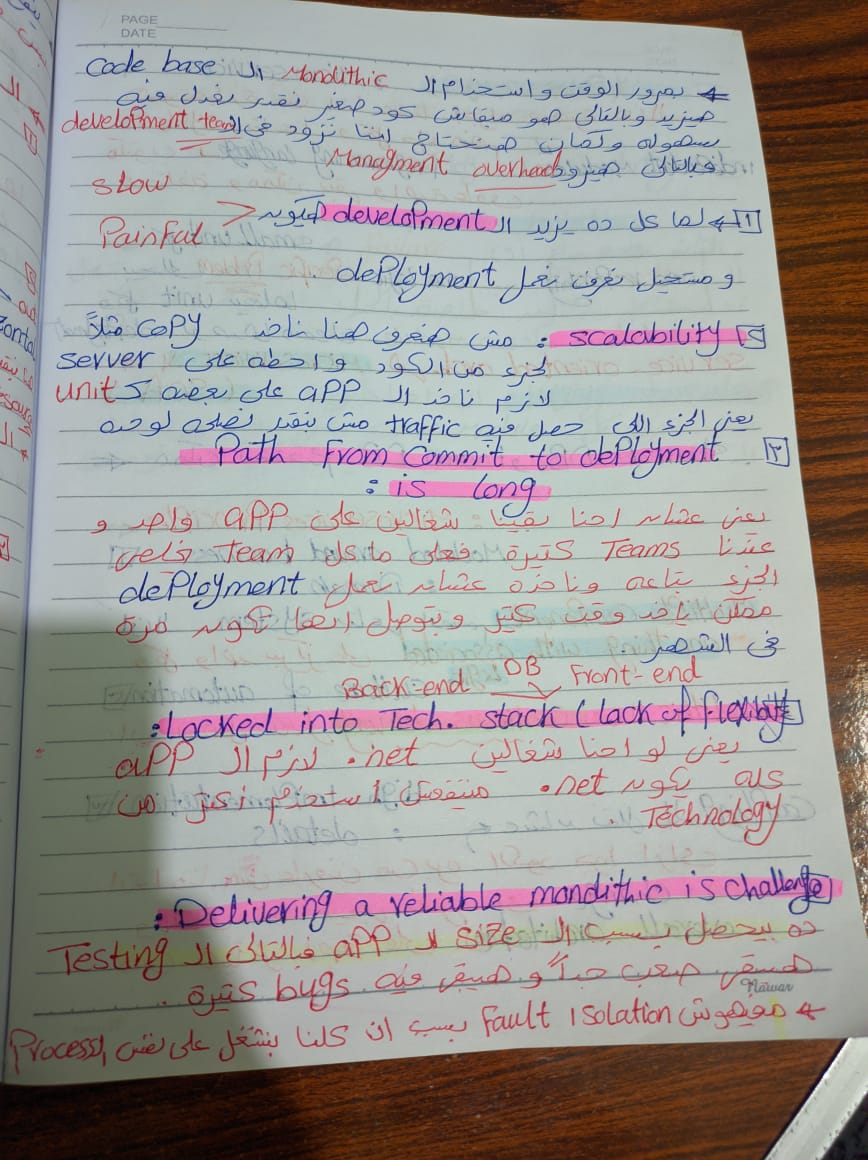 PAGE
DATE
← بمرور الوقت و استخدام ال Monolithic ال Code base
هيزيد وبالتالى هو مبقاش كود صغير نقدر نعدل فيه
بسهوله وكمان هنحتاج اننا نزود فى ال development team
فبالتالى هيزود Managment overhead
[1] ← لما كل ده يزيد ال development هيكون < slow
Painful
و مستحيل نعرف نعمل deployment
[2] scalability : مش هنعرف هنا ناخد copy مثلاً
لجزء من الكود و احطه على server
لازم ناخد ال app على بعضه units
يعنى الجزء اللى حصل فيه traffic مش بنقدر لوحده
[3] Path from commit to deployment
is long :
يعنى عشان احنا بقينا شغالين على app واحد و
عندنا Teams كتيرة فعلى ما كل Team
الجزء بتاعه وناخده عشان نعمل deployment
ممكن ياخد وقت كتير و بتوصل انها تكون مرة
فى الشهر.
Back-end DB Front-end
Locked into Tech. stack (lack of flexibility :
يعنى لو احنا شغالين .net لازم ال app
كله يكون .net مينفعش استخدم اكتر من
Technology
Delivering a reliable monolithic is challenge :
ده بيحصل بسبب ال size ال app فبالتالى ال Testing
هيبقى صعب جداً و هيبقى فيه bugs كتيرة.
Nawar
← مفيهوش Fault Isolation بسبب ان كلنا بنشتغل على نفس ال Process